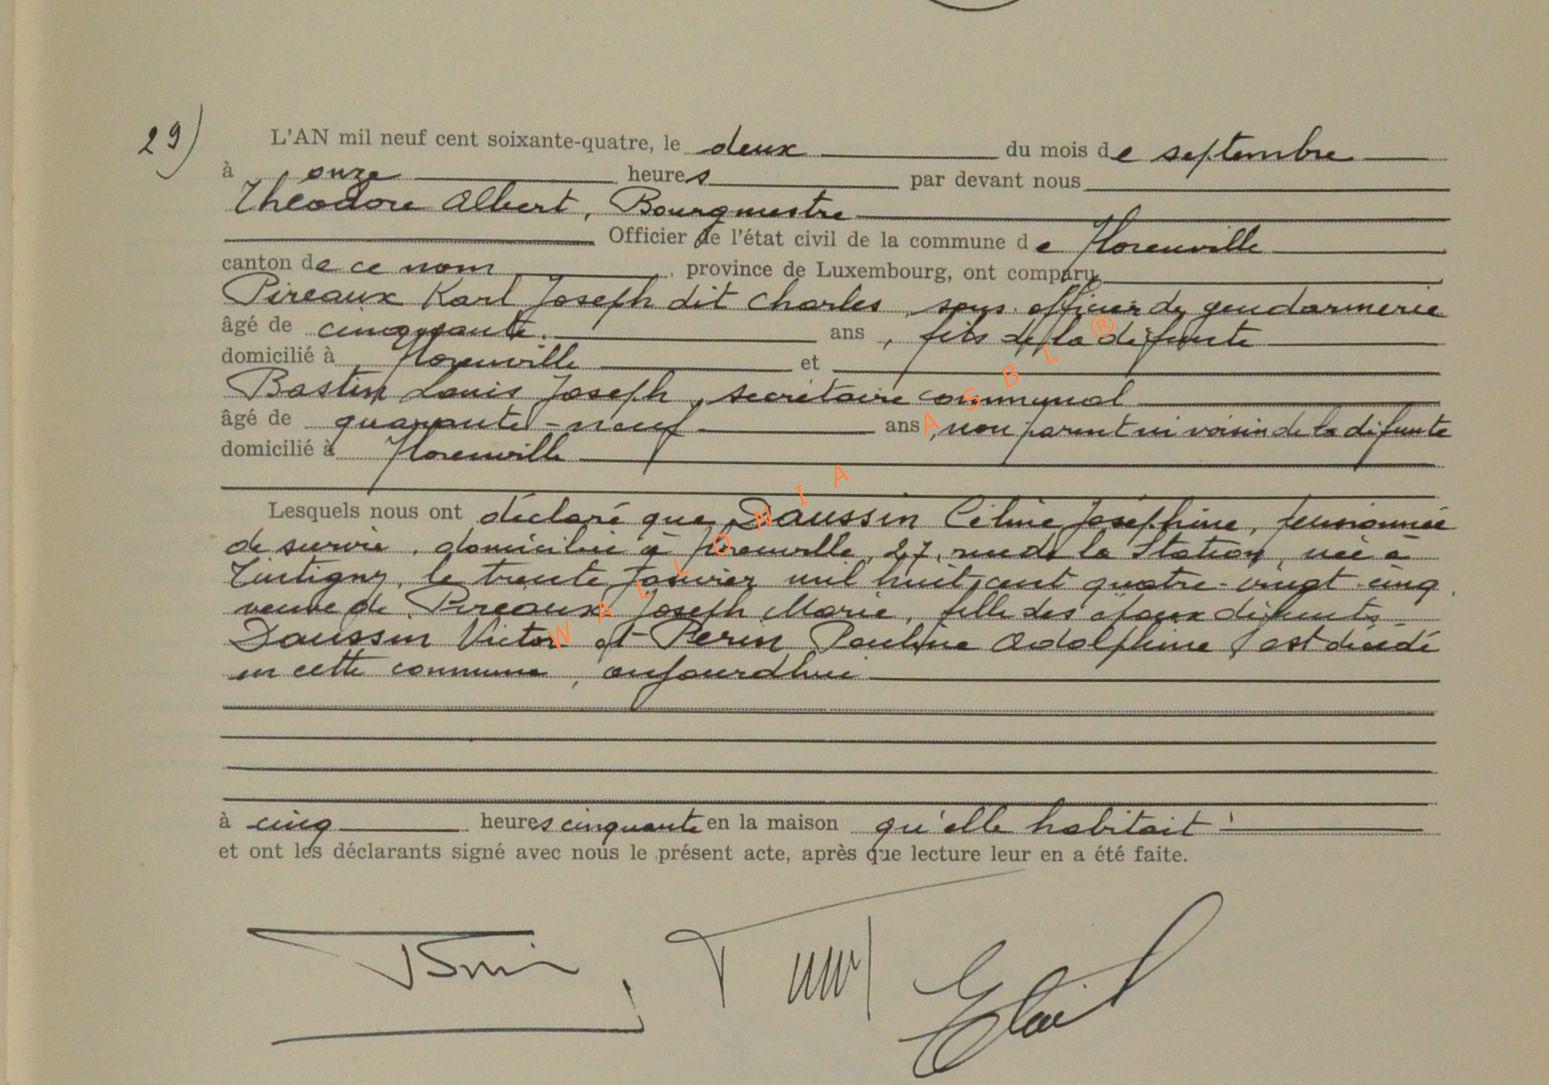 29)
L'AN mil neuf cent soixante-quatre, le deux du mois de septembre
à onze heures par devant nous
Théodore Albert, Bourgmestre
Officier de l'état civil de la commune de Florenville
canton de ce nom, province de Luxembourg, ont comparu
Pireaux Karl Joseph dit Charles, sous officier de gendarmerie
âgé de cinquante ans, fils de la défunte
domicilié à Florenville et
Bastin Louis Joseph, secrétaire communal
âgé de quarante-neuf ans, non parent ni voisin de la défunte
domicilié à Florenville
Lesquels nous ont déclaré que Daussin Céline Joséphine, pensionnée
de survie, domiciliée à Florenville, 27, rue de la Station, née à
Tintigny, le trente Janvier mil huit cent quatre-vingt-cinq,
veuve de Pireaux Joseph Marie, fille des époux défunts
Daussin Victor et Perin Pauline Adolphine, est décédé
en cette commune, aujourd'hui
à cinq heures cinquante en la maison qu'elle habitait
et ont les déclarants signé avec nous le présent acte, après que lecture leur en a été faite.
WALLONIA ASBL ®